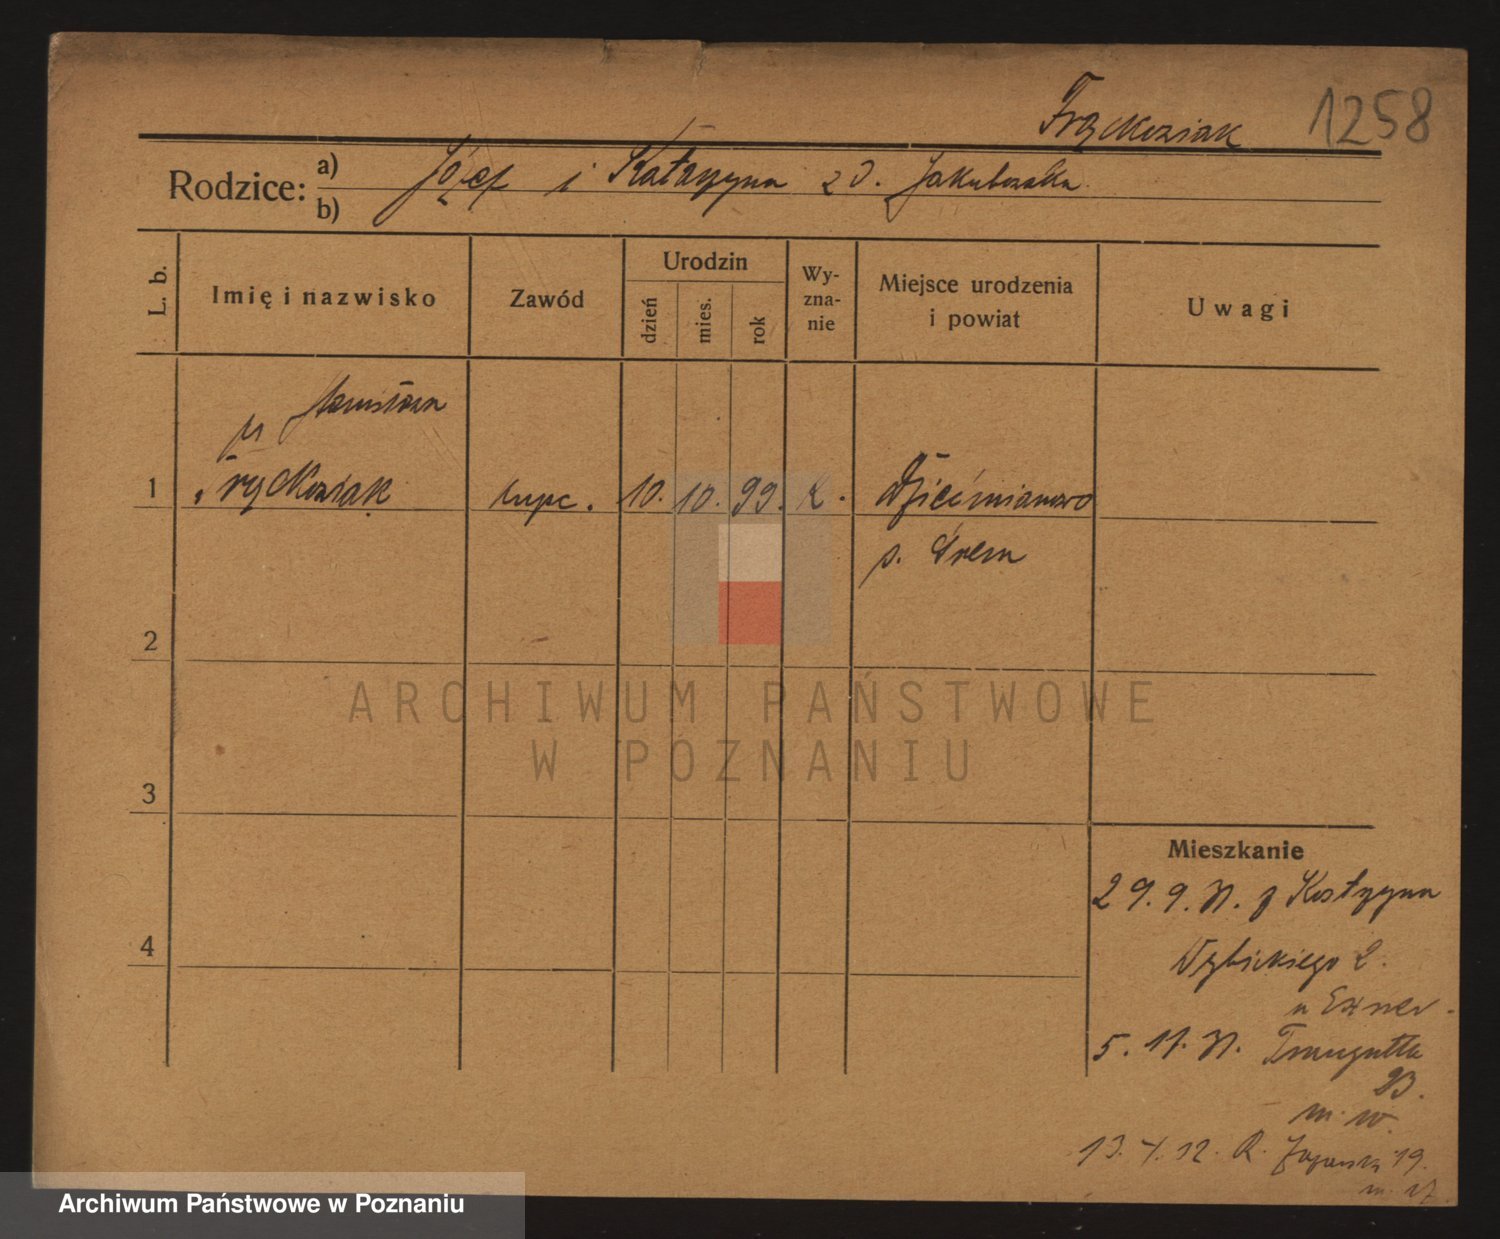 Frąckowiak 1258
Rodzice: a) b) Józef i Katarzyna z d. Jakubowska
L. b.
Imię i nazwisko
Zawód
Urodzin
dzień
mies.
rok
Wy-
zna-
nie
Miejsce urodzenia
i powiat
Uwagi
Stanisława
1 Frąckowiak kupc. 10. 10. 99. k. Dziećmiarowo
p. Śrem
2
3
4
ARCHIWUM PAŃSTWOWE
W POZNANIU
Mieszkanie
29. 9. 31. z Kostrzyna
Wybickiego 2.
u Exner.
5. 11. 31. Traugutta
23.
m. 10.
19.
m. 17
Archiwum Państwowe w Poznaniu